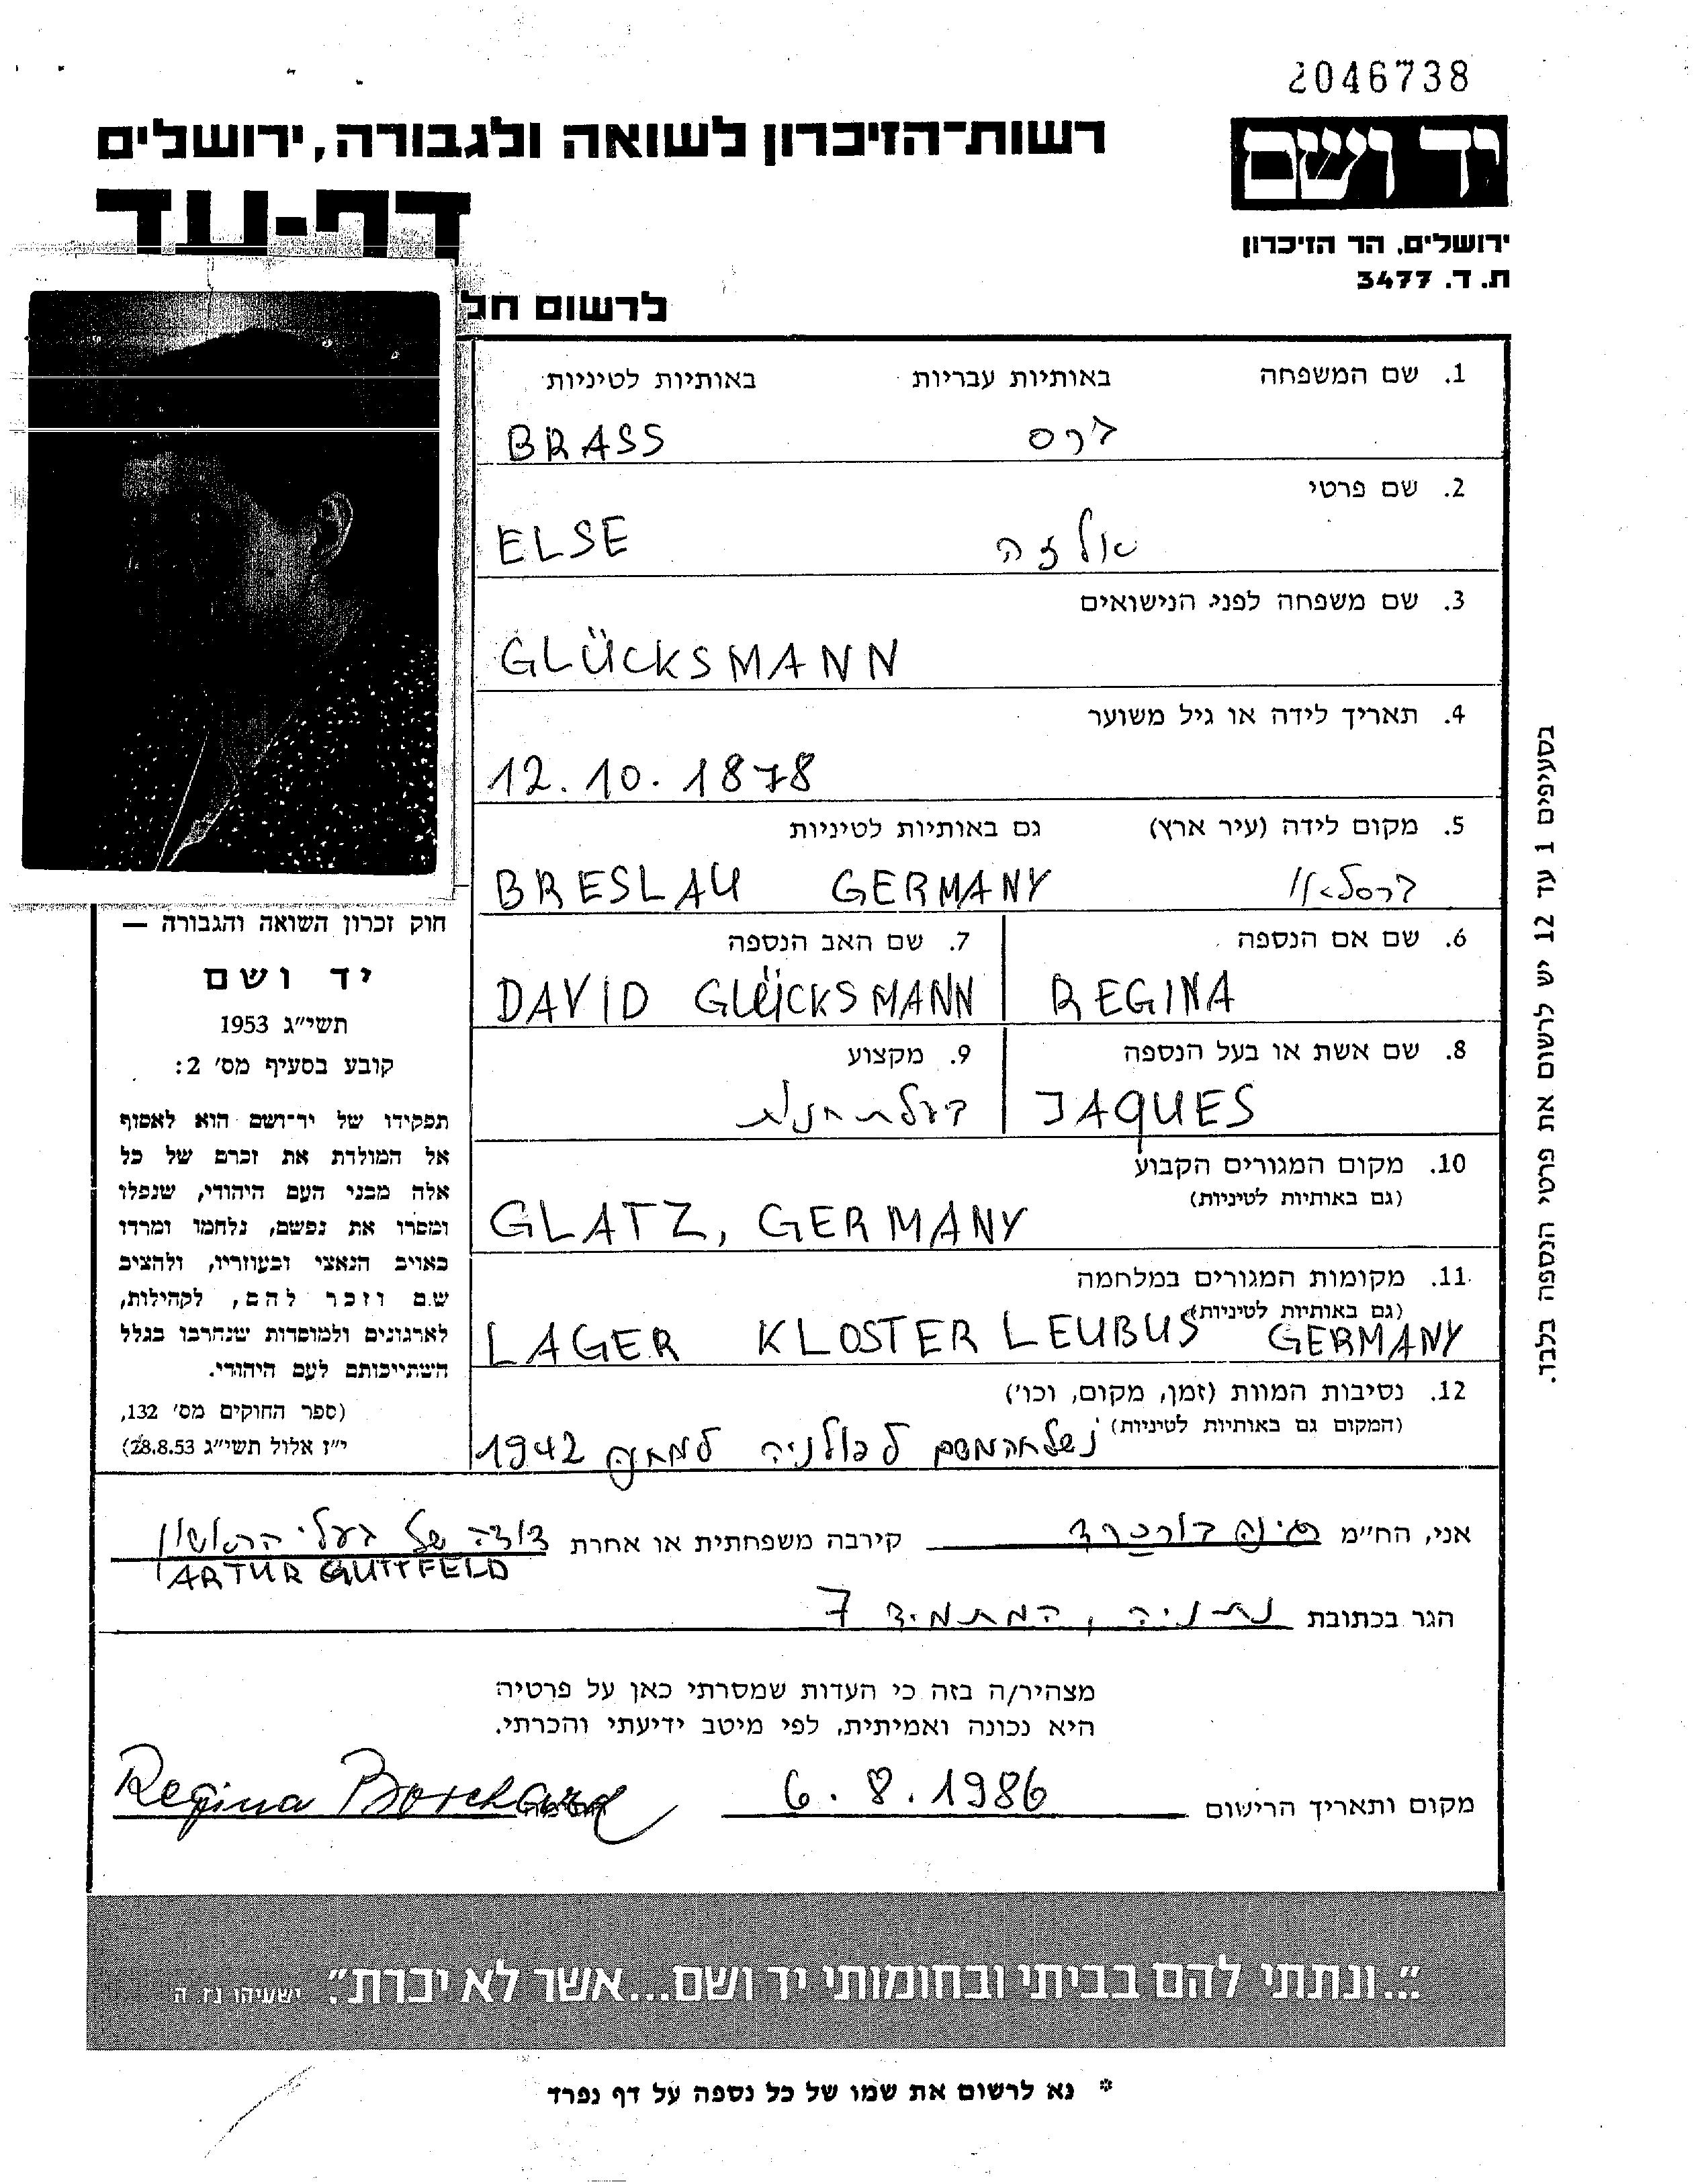 2046738
יד ושם
רשות-הזיכרון לשואה ולגבורה, ירושלים
דף-עד
ירושלים, הר הזיכרון
ת. ד. 3477
לרשום חל
1. שם המשפחה באותיות עבריות באותיות לטיניות
ברס BRASS
2. שם פרטי
אלזה ELSE
3. שם משפחה לפני הנישואים
GLÜCKSMANN
4. תאריך לידה או גיל משוער
12.10.1878
5. מקום לידה (עיר ארץ) גם באותיות לטיניות
ברסלאו BRESLAU GERMANY
6. שם אם הנספה 7. שם האב הנספה
REGINA DAVID GLÜCKSMANN
8. שם אשת או בעל הנספה 9. מקצוע
JAQUES בעלת חנות
10. מקום המגורים הקבוע
(גם באותיות לטיניות)
GLATZ, GERMANY
11. מקומות המגורים במלחמה
(גם באותיות לטיניות)
LAGER KLOSTER LEUBUS GERMANY
12. נסיבות המוות (זמן, מקום, וכו')
(המקום גם באותיות לטיניות)
נשלחה משם לפולניה למחנה 1942
חוק זכרון השואה והגבורה —
יד ושם
תשי"ג 1953
קובע בסעיף מס' 2:
תפקידו של יד-ושם הוא לאסוף
אל המולדת את זכרם של כל
אלה מבני העם היהודי, שנפלו
ומסרו את נפשם, נלחמו ומרדו
באויב הנאצי ובעוזריו, ולהציב
שם וזכר להם, לקהילות,
לארגונים ולמוסדות שנחרבו בגלל
השתייכותם לעם היהודי.
(ספר החוקים מס' 132,
י"ז אלול תשי"ג 28.8.53)
בסעיפים 1 עד 12 יש לרשום את פרטי הנספה בלבד.
אני, הח"מ רגינה בורכרד קירבה משפחתית או אחרת דודה של בעלי הראשון
ARTUR GUTTFELD
הגר בכתובת נתניה, המתמיד 7
מצהיר/ה בזה כי העדות שמסרתי כאן על פרטיה
היא נכונה ואמיתית, לפי מיטב ידיעתי והכרתי.
מקום ותאריך הרישום 6.8.1986 Regina Borchard
"...ונתתי להם בביתי ובחומותי יד ושם...אשר לא יכרת." ישעיהו נו. ה
* נא לרשום את שמו של כל נספה על דף נפרד